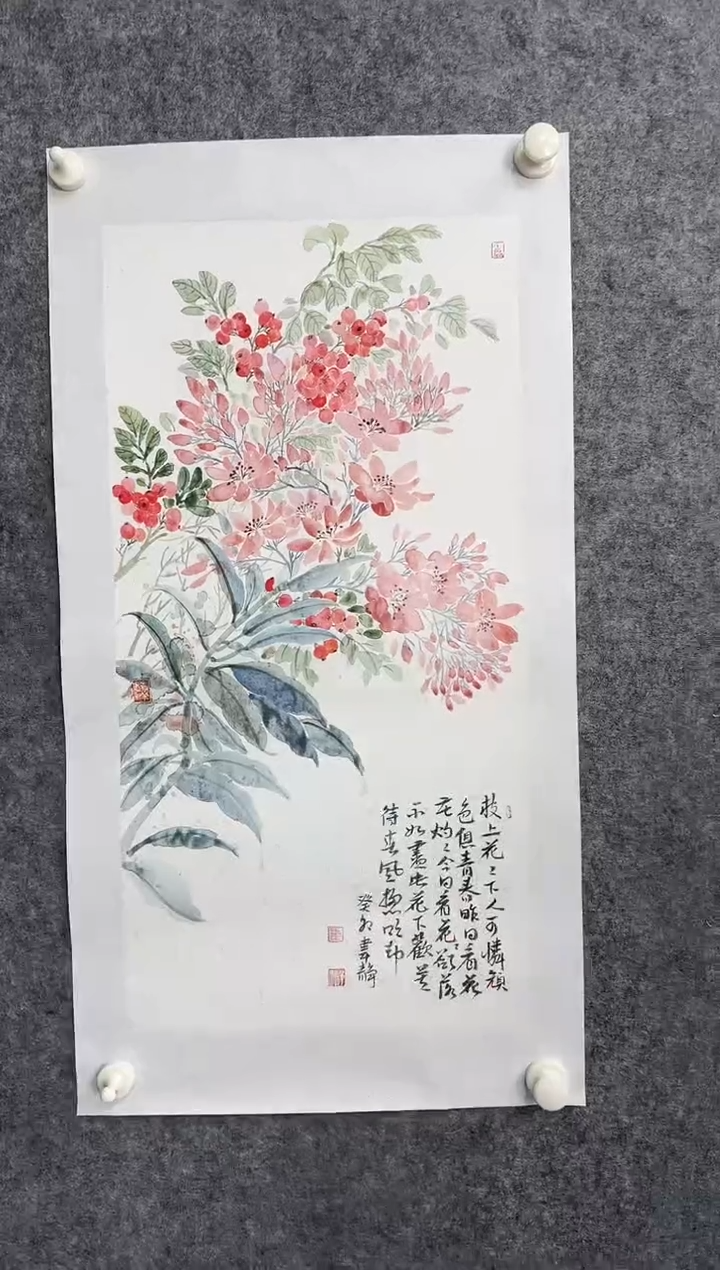 枝上花〻下人可憐顏
色俱青春昨日看花
花灼〻今日看花〻欲落
不如盡此花下歡莫
待春風總吹却
癸卯韋靜